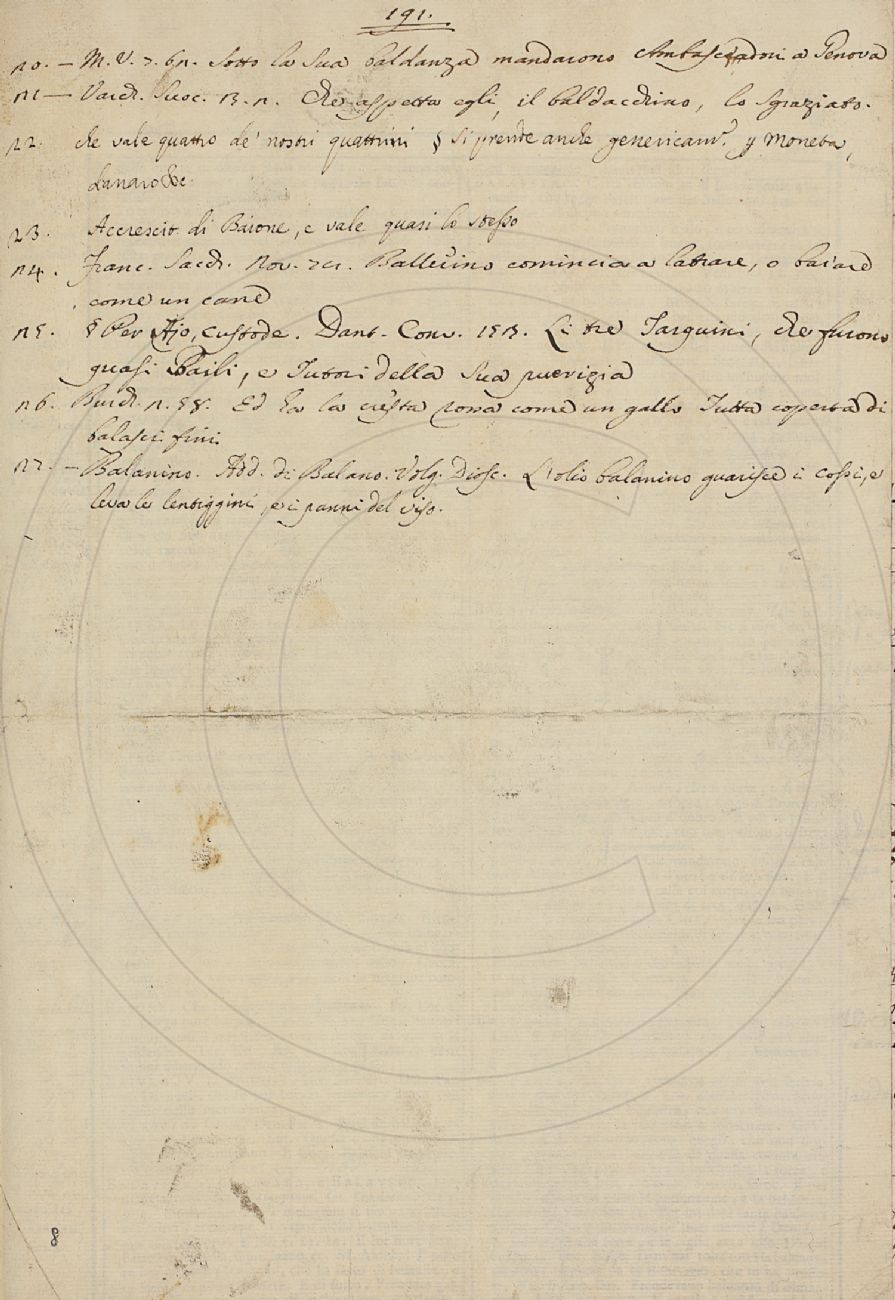 191.
20. — M. V. 7. 62. Sotto la sua baldanza mandarono Ambasciadori a Genova
21 — Varch. Suoc. 3. 2. Che aspetta egli, il baldacchino, lo sgraziato.
22. che vale quattro de' nostri quattrini § Si prende anche genericam. p Moneta,
danaro &c.
23. Accrescit. di Baione, e vale quasi lo stesso
24. Franc. Sacch. Nov. Ballerino comincia a latrare, o baiare
come un cane
25. § Per Ajo, custode. Dant. Conv. Li tre Tarquini, che furono
quasi Baili, e Tutori della sua puerizia
26. Burch. 2. Ed ha la cresta rossa come un gallo Tutta coperta di
balasci fini
27. — Balanino. Add. di Balano. Volg. Diosc. L'olio balanino guarisce i cossi, e
leva le lentiggini, e i panni del viso.
8